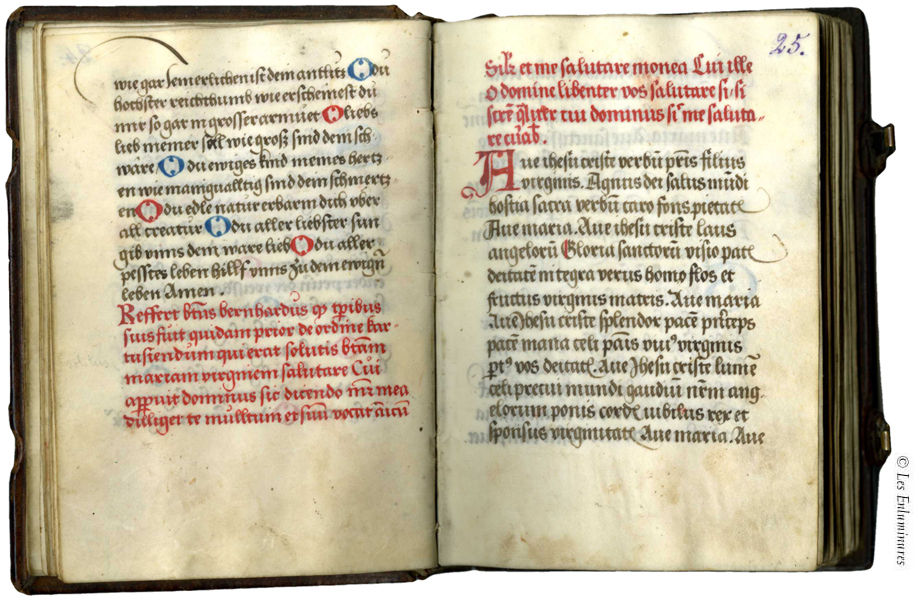 wie gar iemerlichen ist dein antlitz O du
hochster reichthumb wie erscheinest du
mir so gar in grosser armuet O liebs
lieb meiner soll wie groß sind dein sch
wäre O du ewiges kind meines hertz
en wie maniqualltig sind dein schmertz
en O du edle natur erbarm dich vber
all creatur O du aller liebster sun
gib vnns dein ware lieb O du aller
pesstes leben hillf vnns zu dem ewign̄
leben Amen
Reffert btūs bernhardus qp tp̄ribus
suis fuit quidam prior de ordine kar
tusiendum qui erat solutis btām
mariam virginem salutare Cui
appuit dominus sic dicendo mr̄ mea
diliget te mulltum et suū vocat
et me salutare monea Cui ille
o domine libenter vos salutare si si
dominus si me saluta
re
Aue ihesu criste verbū pr̄is filius
virginis. Agnus dei salus mūdi
hostia sacra verbū caro fons pietate
Aue maria. Aue ihesu criste laus
angelorū Gloria sanctorū visio pate
deitate integra verus homo flos et
fructus virginis matris. Aue maria
Aue Jhesu criste splendor pacē prīceps
pacē mana celi pāis viuꝰ virginis
vos deitate. Aue Jhesu criste lumē
celi precui mundi gaudiū nr̄m ang
elorum ponis corde iubilus rex et
sponsus virginitate Aue maria. Aue
25.
© Les Enluminures